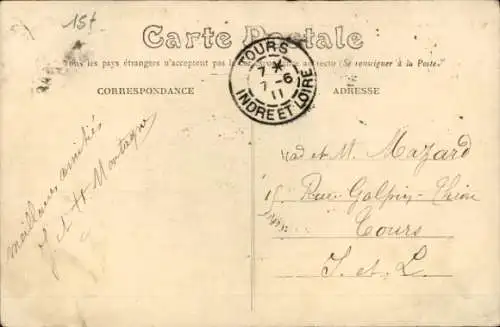 15f
Carte Postale
Tous les pays étrangers n'acceptent pas la correspondance au recto (Se renseigner à la Poste.)
TOURS
7 *
7 -6
11
INDRE ET LOIRE
CORRESPONDANCE
ADRESSE
meilleures amitiés
J et H Montagne
et M. Mazard
15 Rue Galpin-Thiou
Tours
I. et L.